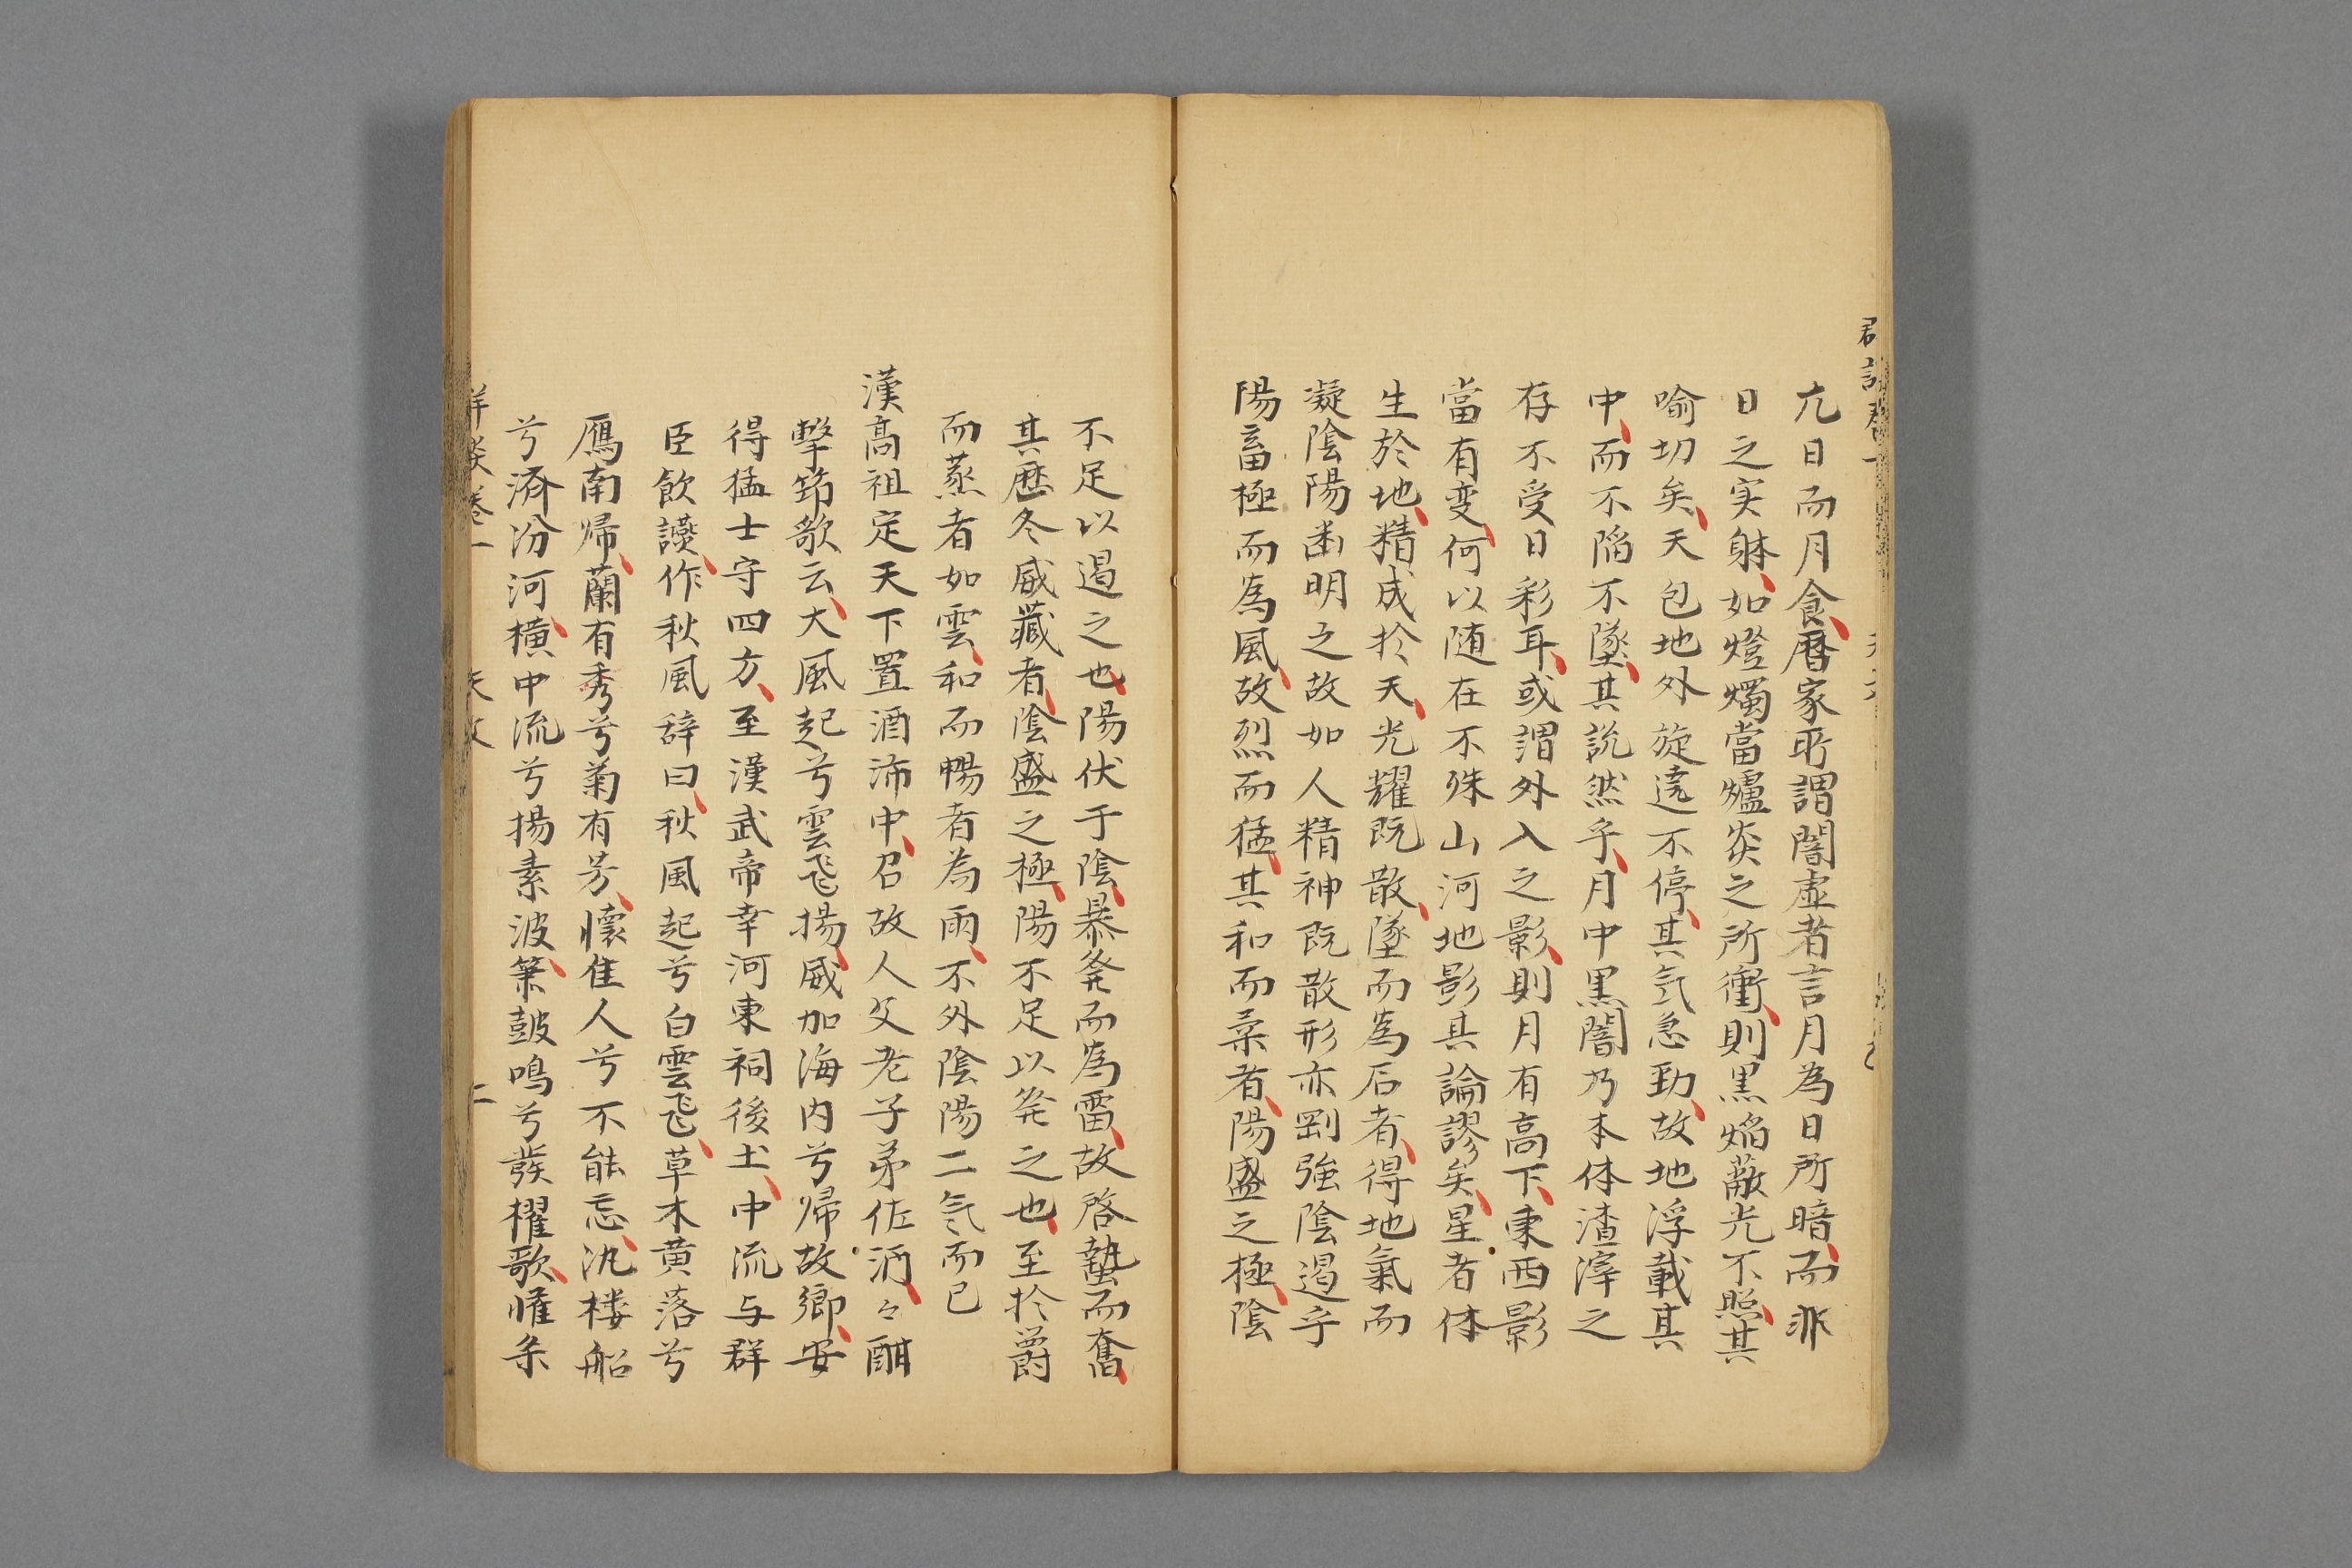 亢日而月食暦家所謂闇虚者言月為日所暗而非
日之実躰如燈燭當爐炎之所衝則黒焔蔽光不照其
喻切矣天包地外旋遶不停其気急勁故地浮載其
中而不陥不墜其説然乎月中黒闇乃本体渣滓之
存不受日彩耳或謂外入之影則月有高下東西影
當有变何以随在不殊山河地影其論謬矣星者体
生於地精成於天光耀既散墜而為石者得地氣而
凝陰陽幽明之故如人精神既散形亦剛強陰遏乎
陽畜極而為風故烈而猛其和而柔者陽盛之極陰
不足以遏之也陽伏于陰暴発而為雷故啓蟄而奮
其歴冬威藏者陰盛之極陽不足以発之也至於爵
而蒸者如雲和而暢者為雨不外陰陽二気而已
漢高祖定天下置酒沛中召故人父老子弟佐酒々酣
擊筑歌云大風起兮雲飞揚威加海内兮帰故鄉安
得猛士守四方至漢武帝幸河東祠後土中流与群
臣飲讌作秋風辞曰秋風起兮白雲飞草木黄落兮
鴈南帰蘭有秀兮菊有芳懐隹人兮不能忘汎楼船
兮済汾河横中流兮揚素波簫鼓鳴兮發櫂歌懽楽
群談巻一 天文 二